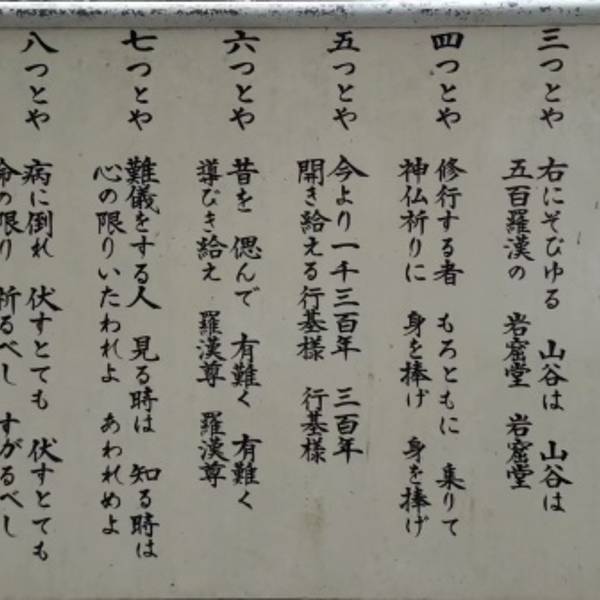 三つとや
右にそびゆる 山谷は 山谷は
五百羅漢の 岩窟堂 岩窟堂
四つとや
修行する者 もろともに 乗りて
神仏祈りに 身を捧げ 身を捧げ
五つとや
今より一千三百年 三百年
開き給える行基様 行基様
六つとや
昔を 偲んで 有難く 有難く
導びき給え 羅漢尊 羅漢尊
七つとや
難儀をする人 見る時は 知る時は
心の限りいたわれよ あわれめよ
八つとや
病に倒れ 伏すとても 伏すとても
命の限り 祈るべし すがるべし